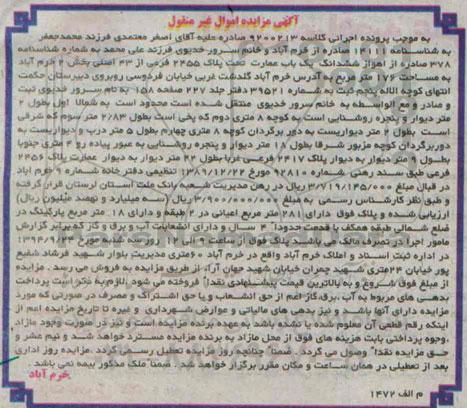 آگهی مزایده اموال غیر منقول
به موجب پرونده اجرائی کلاسه 9200213 صادره علیه آقای اصغر معتمدی فرزند محمدجعفر
به شناسنامه 14111 صادره از خرم آباد و خانم سرور خدیوی فرزند علی محمد به شماره شناسنامه
378 صادره از اهواز ششدانگ یک باب عمارت تحت پلاک 2455 فرعی از 43 اصلی بخش 2 خرم آباد
به مساحت 176 متر مربع به آدرس خرم آباد گلدشت غربی خیابان فردوسی روبروی دبیرستان حکمت
انتهای کوچه لاله پنجم ثبت به شماره 39521 دفتر جلد 227 صفحه 158 به نام سرور خدیوی ثبت
و صادر و مع الواسطه به خانم سرور خدیوی منتقل شده است محدود است به شمالا اول بطول 2
متر دیوار و پنجره روشنایی است به کوچه 8 متری دوم که پخی است بطول 2/83 متر سوم که شرقی
است بطول 2 متر دیواریست به دور برگردان کوچه 8 متری چهارم بطول 5 متر درب و دیواریست به
دوربرگردان کوچه مزبور شرقا بطول 18 متر دیوار و پنجره روشنایی به عبور پیاده رو 4 متری جنوبا
بطول 9 متر دیوار به دیوار پلاک 2417 فرعی غربا بطول 22 متر دیوار به دیوار عمارت پلاک 2456
فرعی طبق سند رهنی شماره 92810 مورخ 1389/12/22 تنظیمی دفترخانه شماره 9 خرم آباد
در قبال مبلغ 3/719/145/000 ریال در رهن مدیریت شعب بانک ملت استان لرستان قرار گرفته
و طبق نظر کارشناس رسمی به مبلغ 3/900/000/000 ریال (سه میلیارد و نهصد میلیون ریال)
ارزیابی شده و پلاک فوق دارای 281 متر مربع اعیانی در 2 طبقه و دارای 18 متر مربع پارکینگ در
ضلع شمالی طبقه همکف با قدمت حدودا 4 سال و دارای انشعابات آب و برق و گاز که برابر گزارش
مامور اجرا در تصرف مالک می باشد پلاک فوق از ساعت 9 الی 12 روز سه شنبه مورخ 1394/9/24
در اداره ثبت اسناد و املاک خرم آباد واقع در خرم آباد 60متری مدیریت بلوار شهید فرشاد شفیع
پور خیابان 24متری شهید چمران خیابان شهید جهان آراء از طریق مزایده به فروش می رسد. مزایده
از مبلغ فوق شروع و به بالاترین قیمت پیشنهادی نقدا فروخته می شود لازم به ذکر است پرداخت
بدهی های مربوط به آب، برق، گاز اعم از حق انشعاب و یا حق اشتراک و مصرف در صورتی که مورد
مزایده دارای آنها باشد و نیز بدهی های مالیاتی و عوارض شهرداری و غیره تا تاریخ مزایده اعم از
اینکه رقم قطعی آن معلوم شده یا نشده باشد به عهده برنده مزایده است و نیز در صورت وجود مازاد
وجوه پرداختی بابت هزینه های فوق از محل مازاد به برنده مزایده مسترد خواهد شد و نیم عشر و
حق مزایده نقدا وصول می گردد. ضمنا چنانچه روز مزایده تعطیل رسمی گردد مزایده روز اداری
بعد از تعطیلی در همان ساعت و مکان مقرر برگزار خواهد شد. ضمنا ملک مذکور بیمه نمی باشد.
خرم آباد
م الف 1472